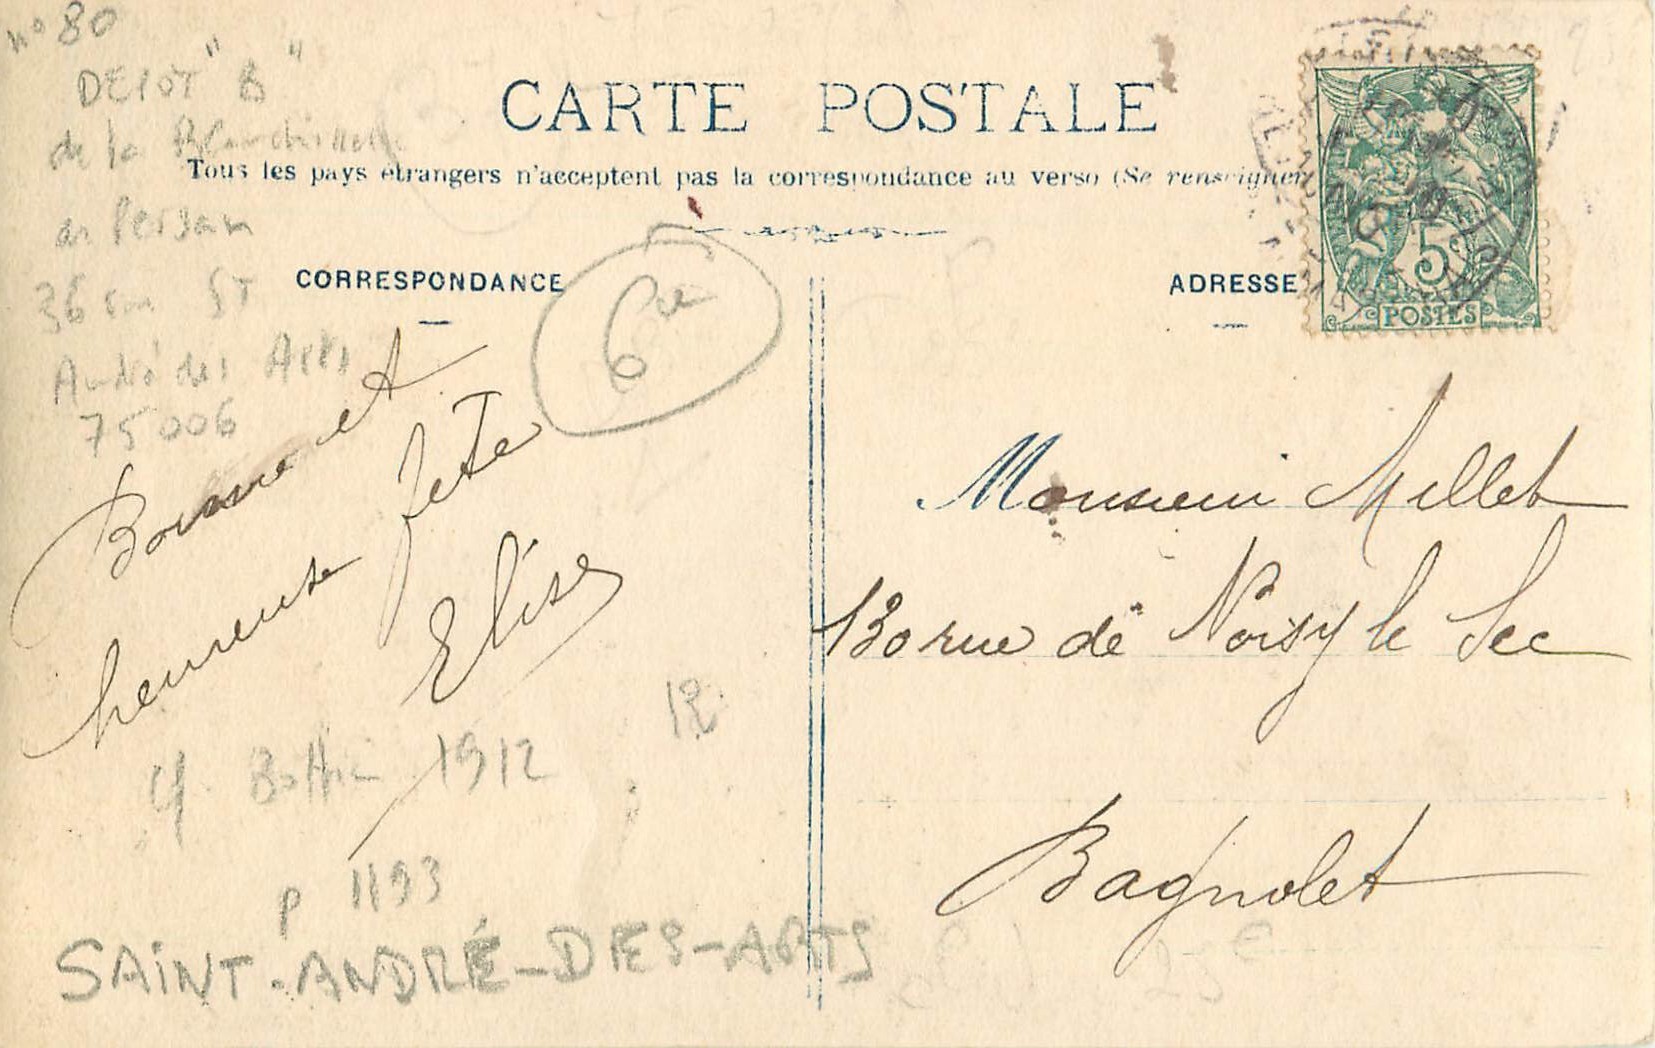 n° 80
DEPOT "B"
de la Blanchisserie
de Persan
36 rue St
André des Arts
75006
CARTE POSTALE
Tous les pays étrangers n'acceptent pas la correspondance au verso (Se renseigner
CORRESPONDANCE
6e
Bonne et
heureuse fete
Elise
12
cf. Bottin 1912
p 1193
SAINT-ANDRÉ-DES-ARTS
ADRESSE
5
POSTES
Monsieur Millet
130 rue de Noisy le Sec
Bagnolet
25€